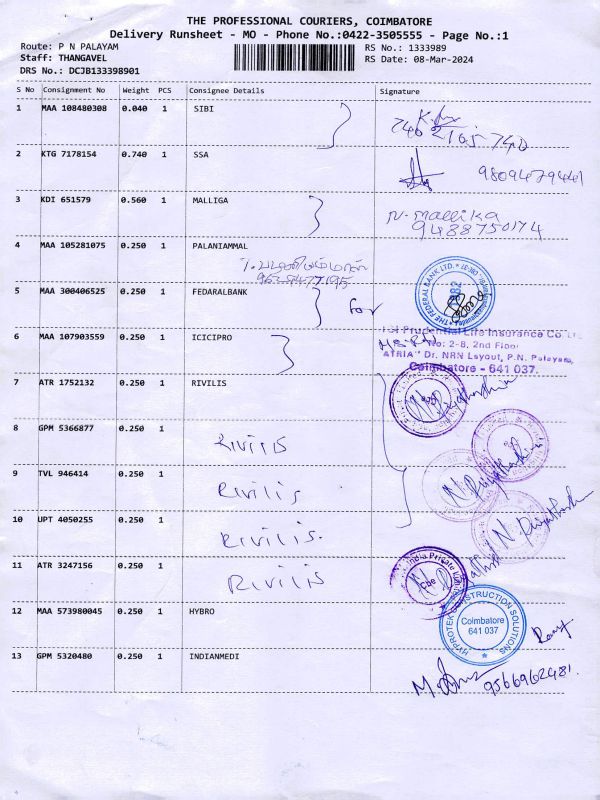 THE PROFESSIONAL COURIERS, COIMBATORE
Delivery Runsheet - MO - Phone No.:0422-3505555 - Page No.:1
Route: P N PALAYAM RS No.: 1333989
Staff: THANGAVEL RS Date: 08-Mar-2024
DRS No.: DCJB133398901
S No Consignment No Weight PCS Consignee Details Signature
1 MAA 108480308 0.040 1 SIBI
2 KTG 7178154 0.740 1 SSA
9809479441
3 KDI 651579 0.560 1 MALLIGA N. Mallika
9488750174
4 MAA 105281075 0.250 1 PALANIAMMAL
5 MAA 300406525 0.250 1 FEDARALBANK for
THE FEDERAL BANK LTD.
6 MAA 107903559 0.250 1 ICICIPRO
Prudential Life Insurance Co.
No: 2-8, 2nd Floor
ATRIA" Dr. NRN Layout, P.N. Palayam,
Coimbatore - 641 037.
7 ATR 1752132 0.250 1 RIVILIS
8 GPM 5366877 0.250 1 Rivilis
9 TVL 946414 0.250 1 Rivilis
10 UPT 4050255 0.250 1 Rivilis.
11 ATR 3247156 0.250 1 Rivilis
India Private
Cbe
12 MAA 573980045 0.250 1 HYBRO
HYPROTEK CONSTRUCTION SOLUTIONS
Coimbatore
641 037
13 GPM 5320480 0.250 1 INDIANMEDI
9566962481.